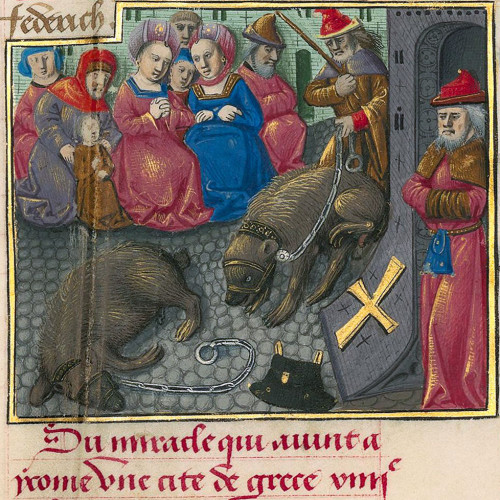 federich
Du miracle qui auint a
yxome vne cite de grece